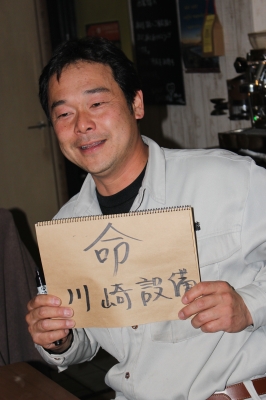 命
川崎設備